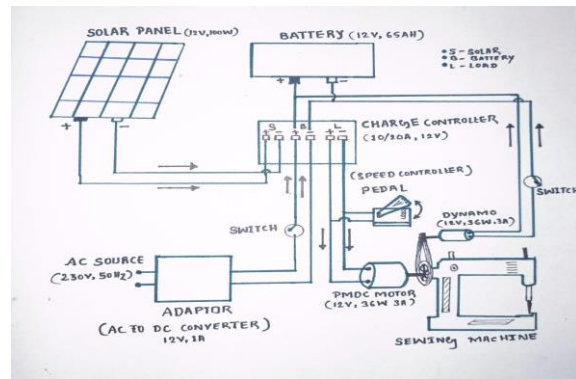 SOLAR PANEL (12V, 100W)
BATTERY (12V, 65AH)
S - SOLAR
B - BATTERY
L - LOAD
+ -
+ -
S B L
+ - + - + -
CHARGE CONTROLLER
(10/20A, 12V)
(SPEED CONTROLLER)
PEDAL
SWITCH
SWITCH
DYNAMO
(12V, 36W, 3A)
AC SOURCE
(230V, 50HZ)
ADAPTOR
(AC TO DC CONVERTER)
12V, 2A
PMDC MOTOR
(12V, 36W 3A)
SEWING MACHINE